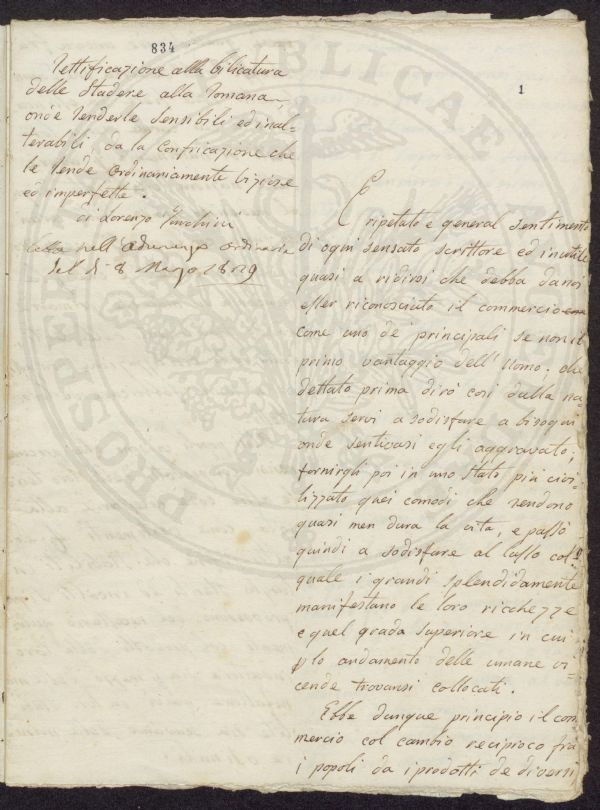 834
1
Rettificazione alla bilicatura
delle stadere alla Romana,
onde renderle sensibili ed inal=
terabili da la Confricazione che
le rende Ordinariamente viziose
ed imperfette.
di Lorenzo
Letta nell'adunanza ordinaria
del dì 8 Marzo 1829
E ripetuto e general sentimento
di ogni sensato scrittore ed inutile
quasi a ridirsi che debba da noi
esser riconosciuto il commercio
come uno de principali se non il
primo vantaggio dell'Uomo: che
dettato prima dirò così dalla na=
tura servì a sodisfare a bisogni
onde sentivasi egli aggravato;
fornirgli poi in uno stato più civi=
lizzato quei comodi che rendono
quasi men dura la vita, e passò
quindi a sodisfare al lusso col
quale i grandi splendidamente
manifestano le loro ricchezze
e quel grado superiore in cui
p lo andamento delle umane vi=
cende trovansi collocati.
Ebbe dunque principio il com
mercio col cambio reciproco fra
i popoli da i prodotti de diversi
PROSPERITATI PUBLICAE